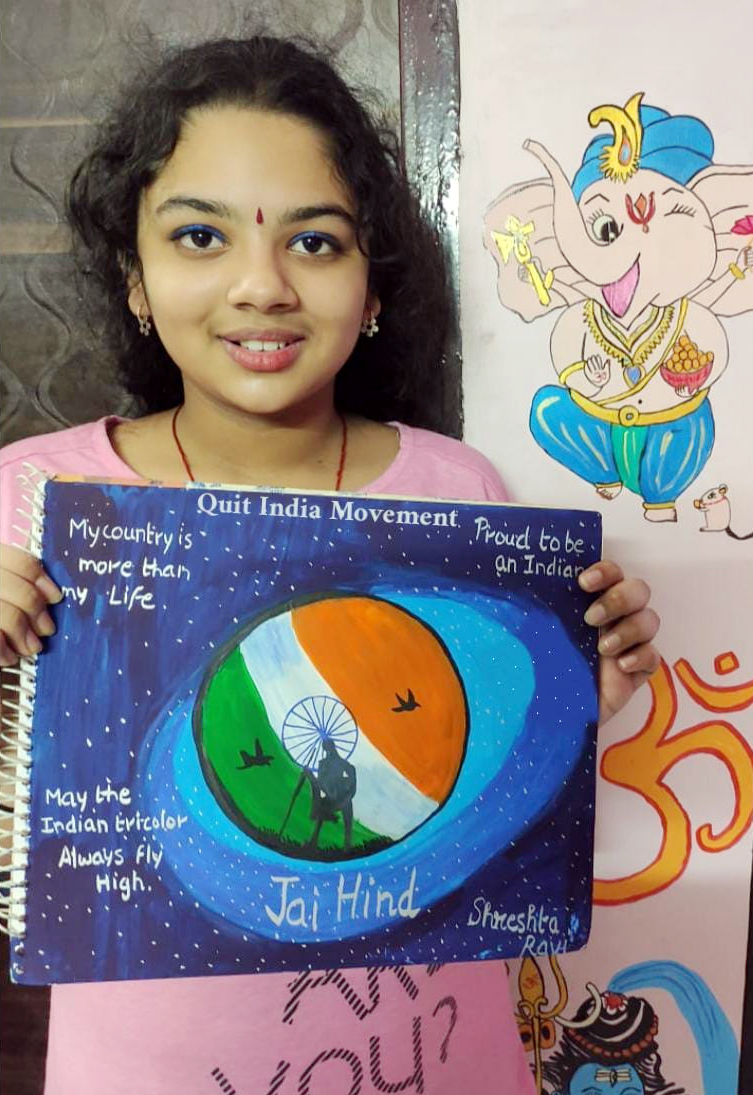 Quit India Movement
My country is
more than
my Life.
Proud to be
an Indian
May the
Indian tricolor
Always fly
High.
Jai Hind
Shreshta
Ravi
ॐ
YOU?